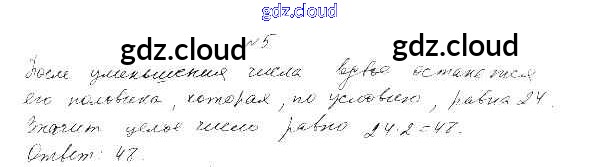 gdz.cloud
№5
gdz.cloud gdz.cloud
После уменьшения числа вдвое останется
его половина, которая, по условию, равна 24.
Значит целое число равно 24·2=48.
Ответ: 48.